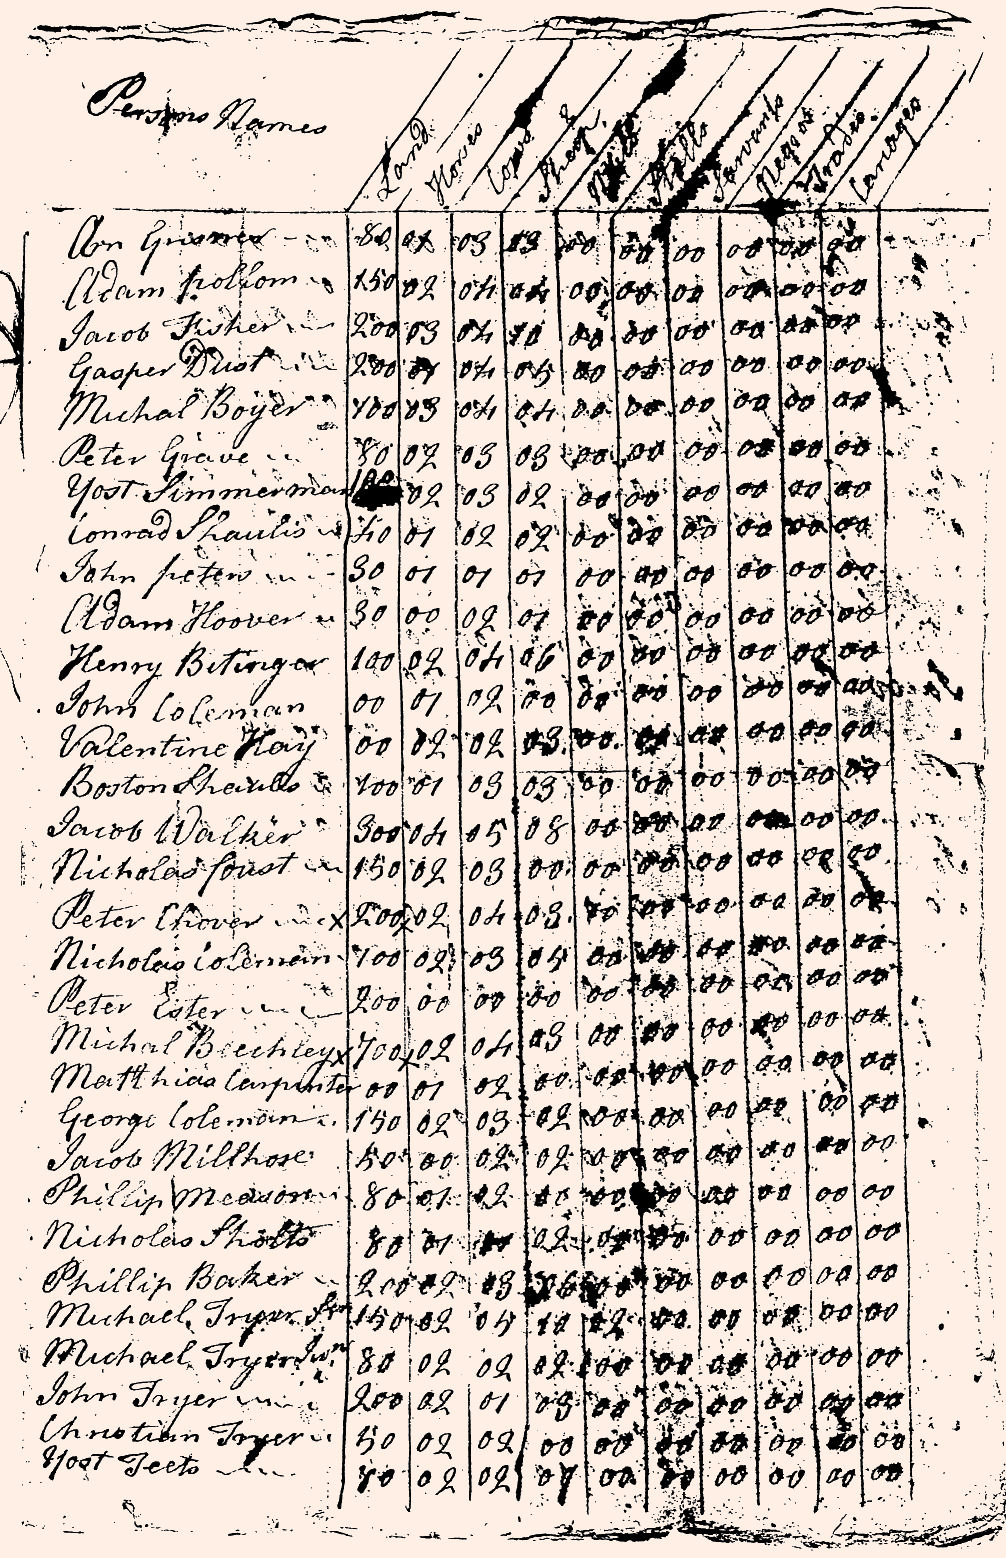 Persons Names Land Horses Cows Sheep Mills Stills Sarvants Negros Trads Cariages
80 01 03 00 00 00 00 00 00
Adam 150 02 04 04 00 00 00 00 00 00
Jacob Fisher 200 03 04 10 00 00 00 00 00 00
Gasper Dust 200 04 05 00 00 00 00 00 00
Michal Boyer 100 03 04 04 00 00 00 00 00 00
Peter Grave 80 02 03 03 00 00 00 00 00 00
Yost Simmerman 02 03 02 00 00 00 00 00 00
Conrad Shaulis 40 01 02 02 00 00 00 00 00 00
John peters 30 01 01 01 00 00 00 00 00 00
Adam Hoover 30 00 02 01 00 00 00 00 00 00
Henry Bitinger 100 02 04 06 00 00 00 00 00 00
John Coleman 00 01 02 00 00 00 00 00 00 00
Valentine Hay 00 02 02 03 00 00 00 00 00
Boston Shaulis 100 01 03 03 00 00 00 00 00 00
Jacob Walker 300 04 05 08 00 00 00 00 00 00
Nicholas foust 150 02 03 00 00 00 00 00 00 00
Peter x 200 x 02 04 03 00 00 00 00 00
Nicholas Coleman 100 02 03 05 00 00 00 00 00 00
Peter Ester 200 00 00 00 00 00 00 00 00 00
Michal Beechley x 100 x 02 04 03 00 00 00 00 00 00
Matthias Carpinter 00 01 02 00 00 00 00 00 00 00
George Coleman 150 02 03 02 00 00 00 00 00 00
Jacob Millhose 50 00 02 02 00 00 00 00 00 00
Phillip Meason 80 01 02 00 00 00 00 00 00 00
Nicholas Sholts 80 01 02 00 00 00 00 00
Phillip Baker 200 02 03 06 00 00 00 00 00 00
Michael Fryer Snr 150 02 05 10 02 00 00 00 00 00
Michael Fryer Junr 80 02 02 02 00 00 00 00 00 00
John Fryer 200 02 01 03 00 00 00 00 00 00
Christian Fryer 50 02 02 00 00 00 00 00 00 00
Yost Teets 02 02 00 00 00 00 00 00